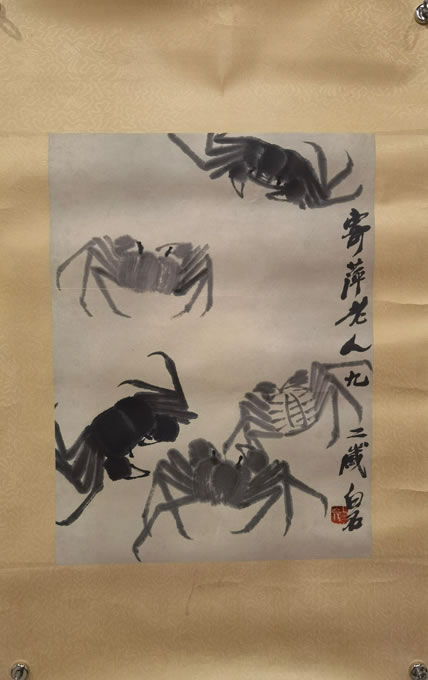 寄萍老人九二歲白石